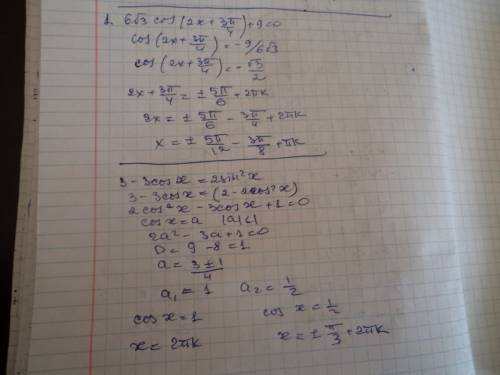 1. 6√3 cos(2x + 3π/4) + 9 = 0
cos(2x + 3π/4) = -9/6√3
cos(2x + 3π/4) = -√3/2
2x + 3π/4 = ± 5π/6 + 2πk
2x = ± 5π/6 - 3π/4 + 2πk
x = ± 5π/12 - 3π/8 + πk
3 - 3cosx = 2sin²x
3 - 3cosx = (2 - 2cos²x)
2cos²x - 3cosx + 1 = 0
cosx = a |a|≤1
2a² - 3a + 1 = 0
D = 9 - 8 = 1
a = 3 ± 1/4
a₁ = 1 a₂ = 1/2
cosx = 1 cosx = 1/2
x = 2πk x = ± π/3 + 2πk